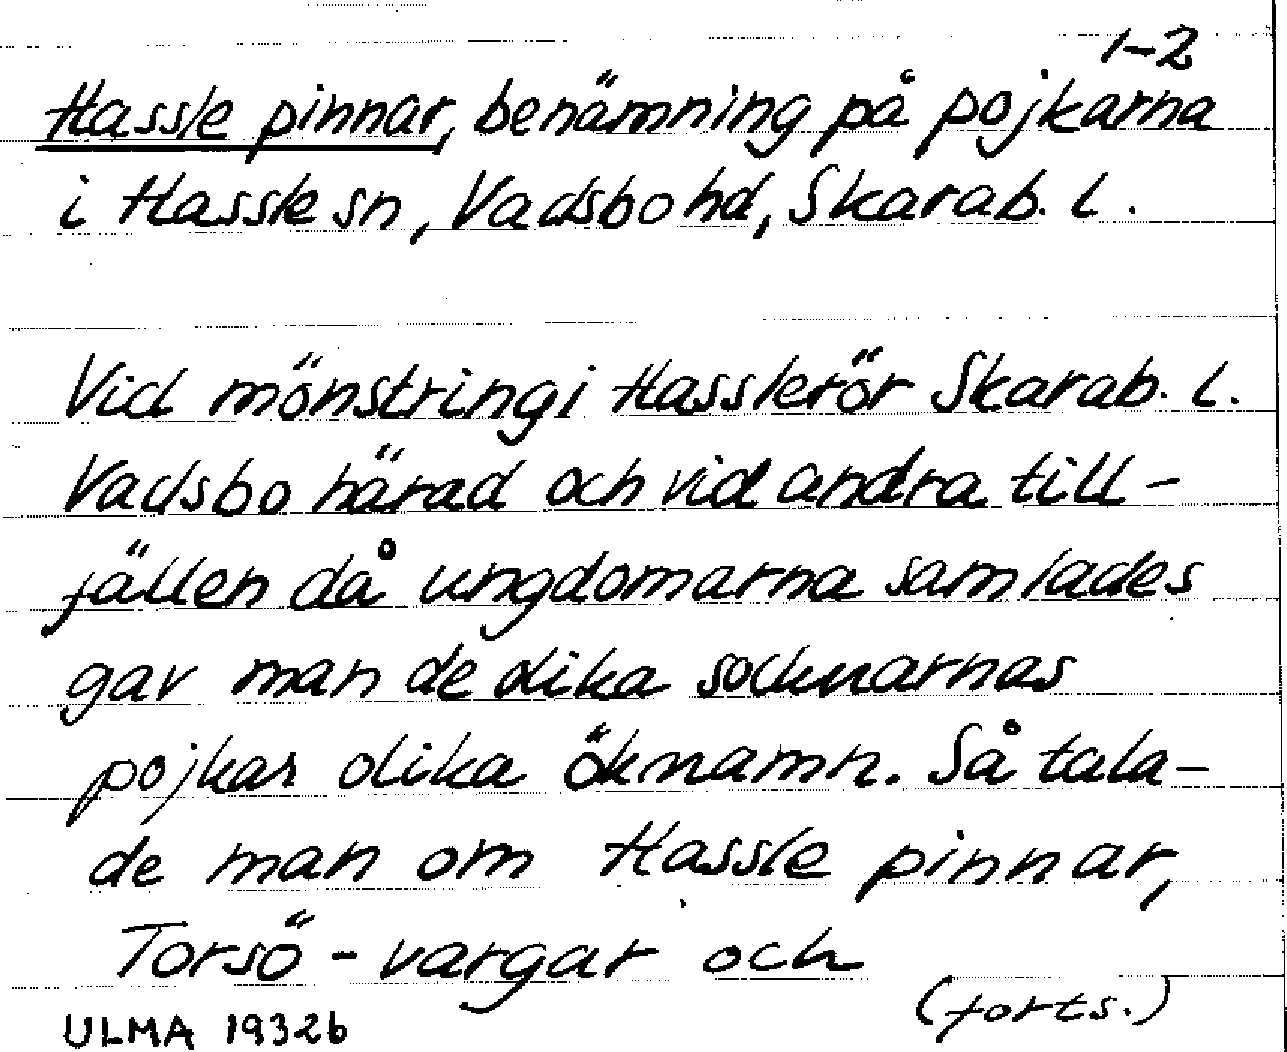 1-2
Hassle pinnar, benämning på pojkarna
i Hassle sn, Vadsbo hd, Skarab. l.
Vid mönstring i Hasslerör Skarab. l.
Vadsbo härad och vid andra till-
fällen då ungdomarna samlades
gav man de olika socknarnas
pojkar olika öknamn. Så tala-
de man om Hassle pinnar,
Torsö-vargar och
(forts.)
ULMA 19326